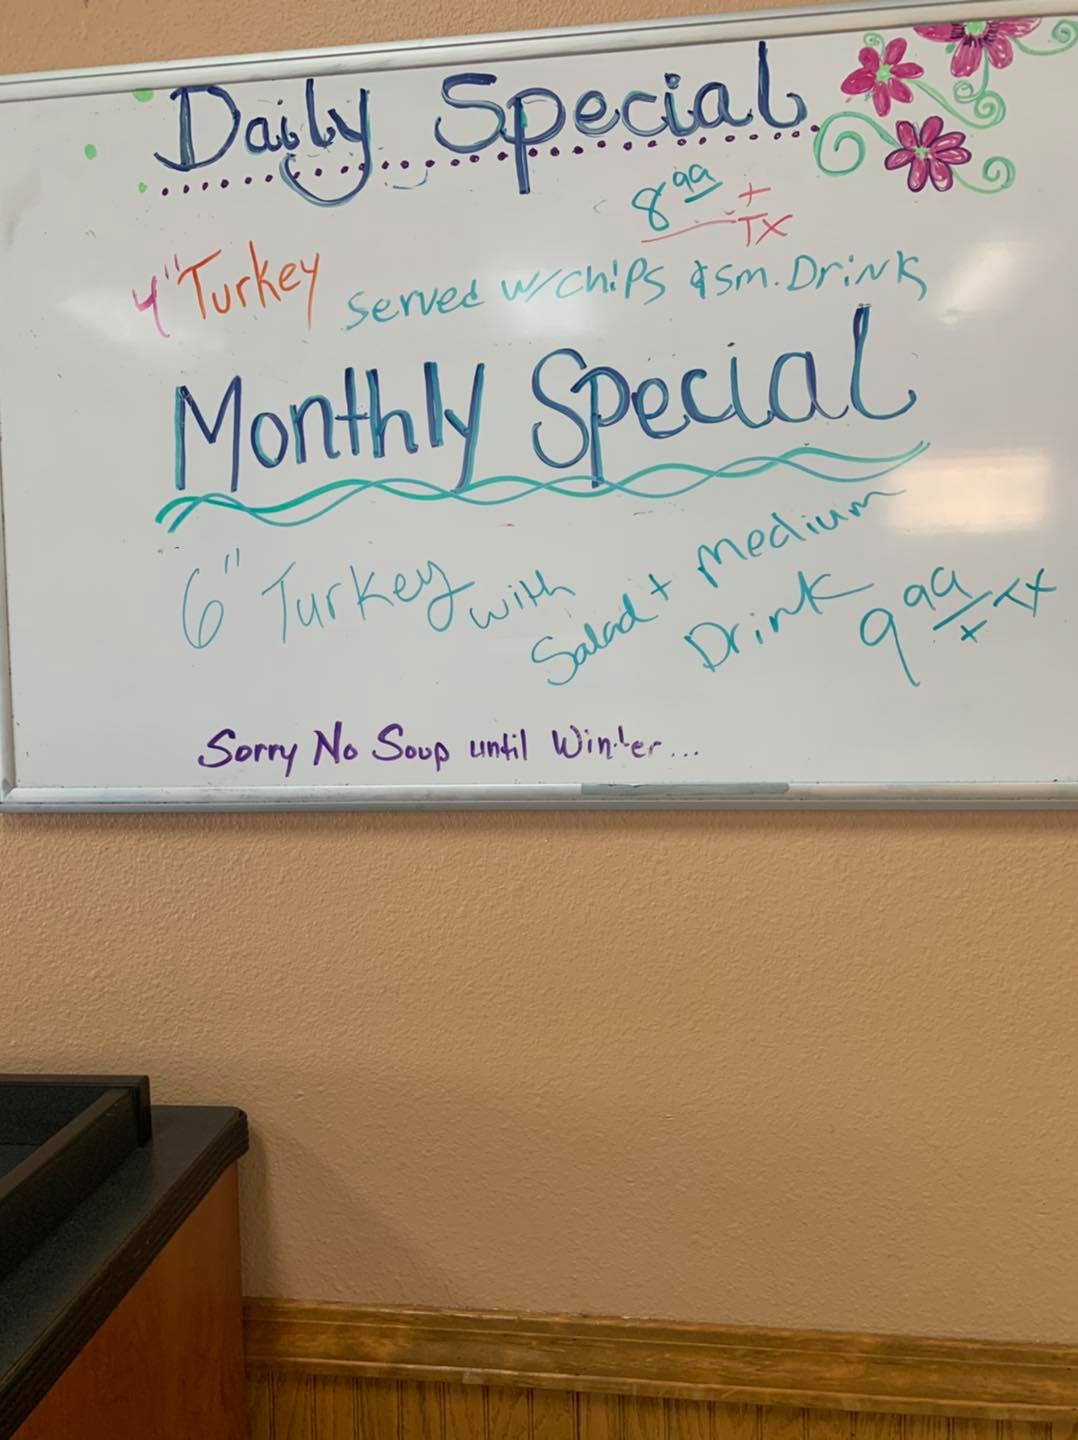 Daily Special
8 99 + TX
4" Turkey served w/chips & sm. Drink
Monthly Special
6" Turkey with
Salad + medium
Drink 9 99 + TX
Sorry No Soup until Winter...